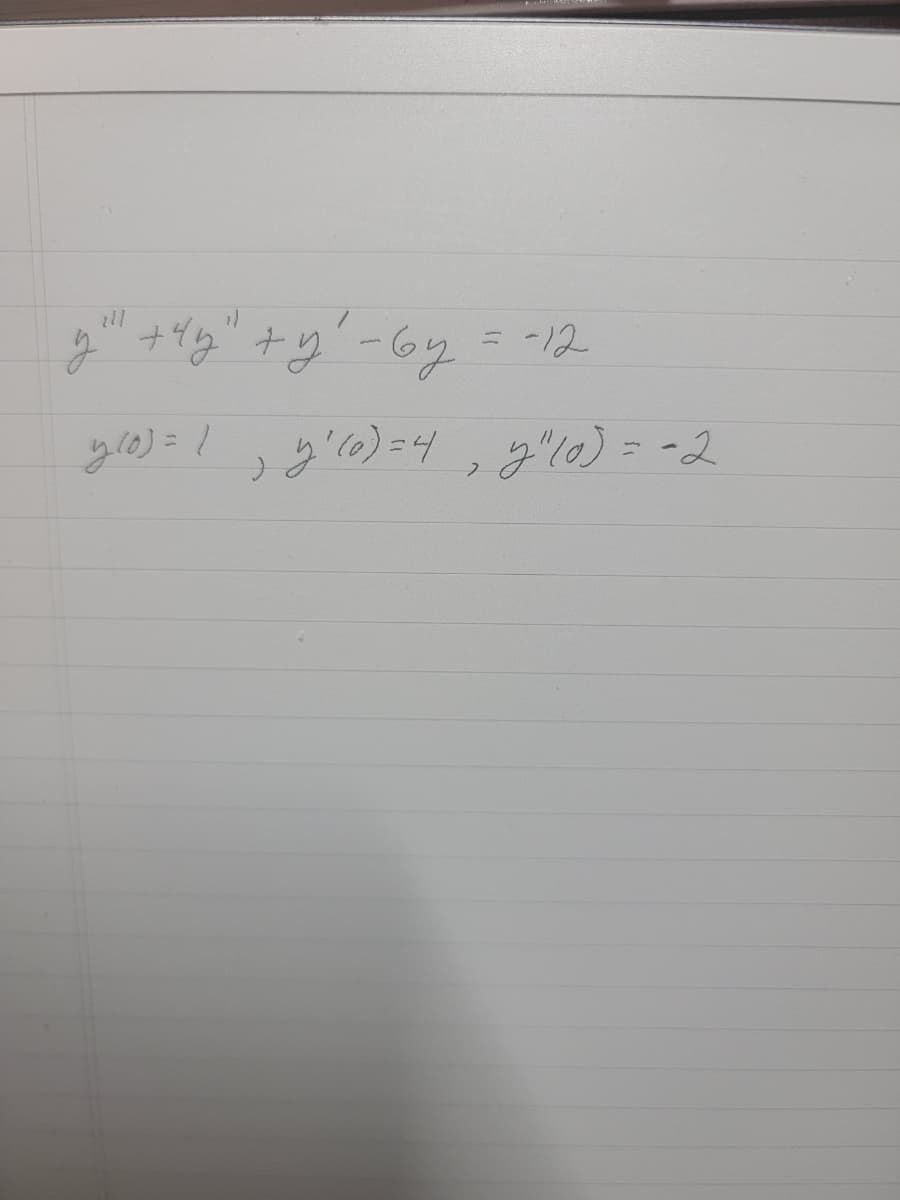 y''' + 4y'' + y' - 6y = -12
y(0) = 1 , y'(0) = 4 , y''(0) = -2